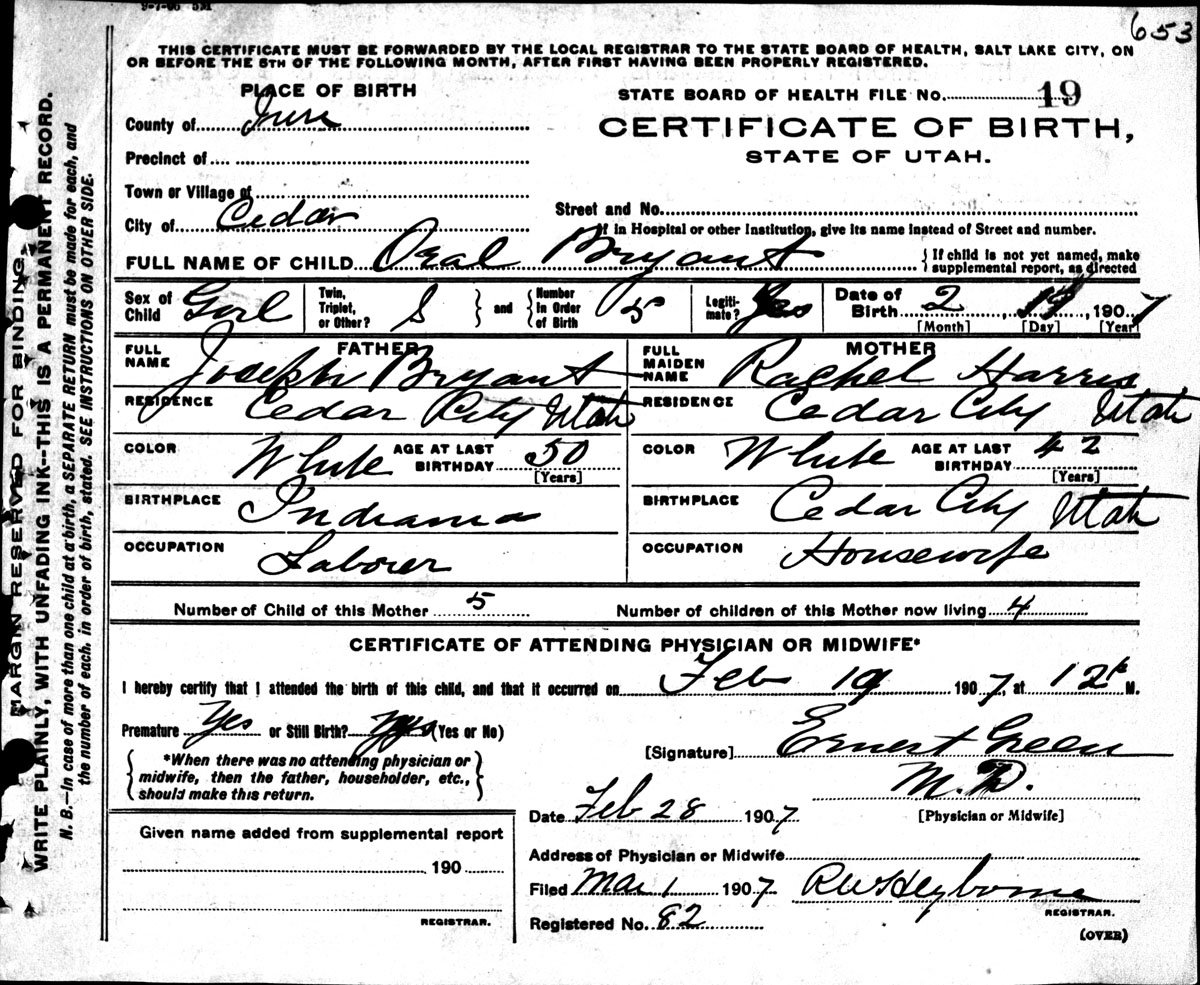 9-7-06 5M
653
THIS CERTIFICATE MUST BE FORWARDED BY THE LOCAL REGISTRAR TO THE STATE BOARD OF HEALTH, SALT LAKE CITY, ON
OR BEFORE THE 5TH OF THE FOLLOWING MONTH, AFTER FIRST HAVING BEEN PROPERLY REGISTERED.
PLACE OF BIRTH
STATE BOARD OF HEALTH FILE No. 19
County of Iron
CERTIFICATE OF BIRTH,
STATE OF UTAH.
Precinct of
Town or Village of
City of Cedar
Street and No.
If in Hospital or other Institution, give its name instead of Street and number.
FULL NAME OF CHILD Oral Bryant {If child is not yet named, make supplemental report, as directed
Sex of Child Girl Twin, Triplet, or Other? S } and { Number in Order of Birth 5 Legiti-mate? Yes Date of Birth 2, 19, 1907
[Month] [Day] [Year]
FATHER
MOTHER
FULL NAME Joseph Bryant
FULL MAIDEN NAME Rachel Harris
RESIDENCE Cedar City Utah
RESIDENCE Cedar City Utah
COLOR White AGE AT LAST BIRTHDAY 50 [Years]
COLOR White AGE AT LAST BIRTHDAY 42 [Years]
BIRTHPLACE Indiana
BIRTHPLACE Cedar City Utah
OCCUPATION Laborer
OCCUPATION Housewife
Number of Child of this Mother 5 Number of children of this Mother now living 4
CERTIFICATE OF ATTENDING PHYSICIAN OR MIDWIFE*
I hereby certify that I attended the birth of this child, and that it occurred on Feb 19 1907, at 12 M.
Premature Yes or Still Birth? (Yes or No)
[Signature] Ernest Green
M.D.
[Physician or Midwife]
{ *When there was no attending physician or
midwife, then the father, householder, etc.,
should make this return. }
Date Feb 28 1907
Given name added from supplemental report
190
REGISTRAR.
Address of Physician or Midwife
Filed Mar 1 1907 R W Heyborne
REGISTRAR.
Registered No. 82
(OVER)
MARGIN RESERVED FOR BINDING.
WRITE PLAINLY, WITH UNFADING INK--THIS IS A PERMANENT RECORD.
N. B.—In case of more than one child at a birth, a SEPARATE RETURN must be made for each, and
the number of each, in order of birth, stated. SEE INSTRUCTIONS ON OTHER SIDE.